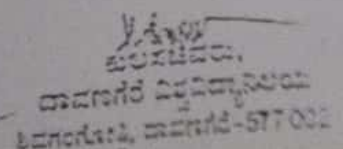 ಕುಲಸಚಿವರು,
ದಾವಣಗೆರೆ ವಿಶ್ವವಿದ್ಯಾನಿಲಯ
ಶಿವಗಂಗೋತ್ರಿ, ದಾವಣಗೆರೆ-577 002